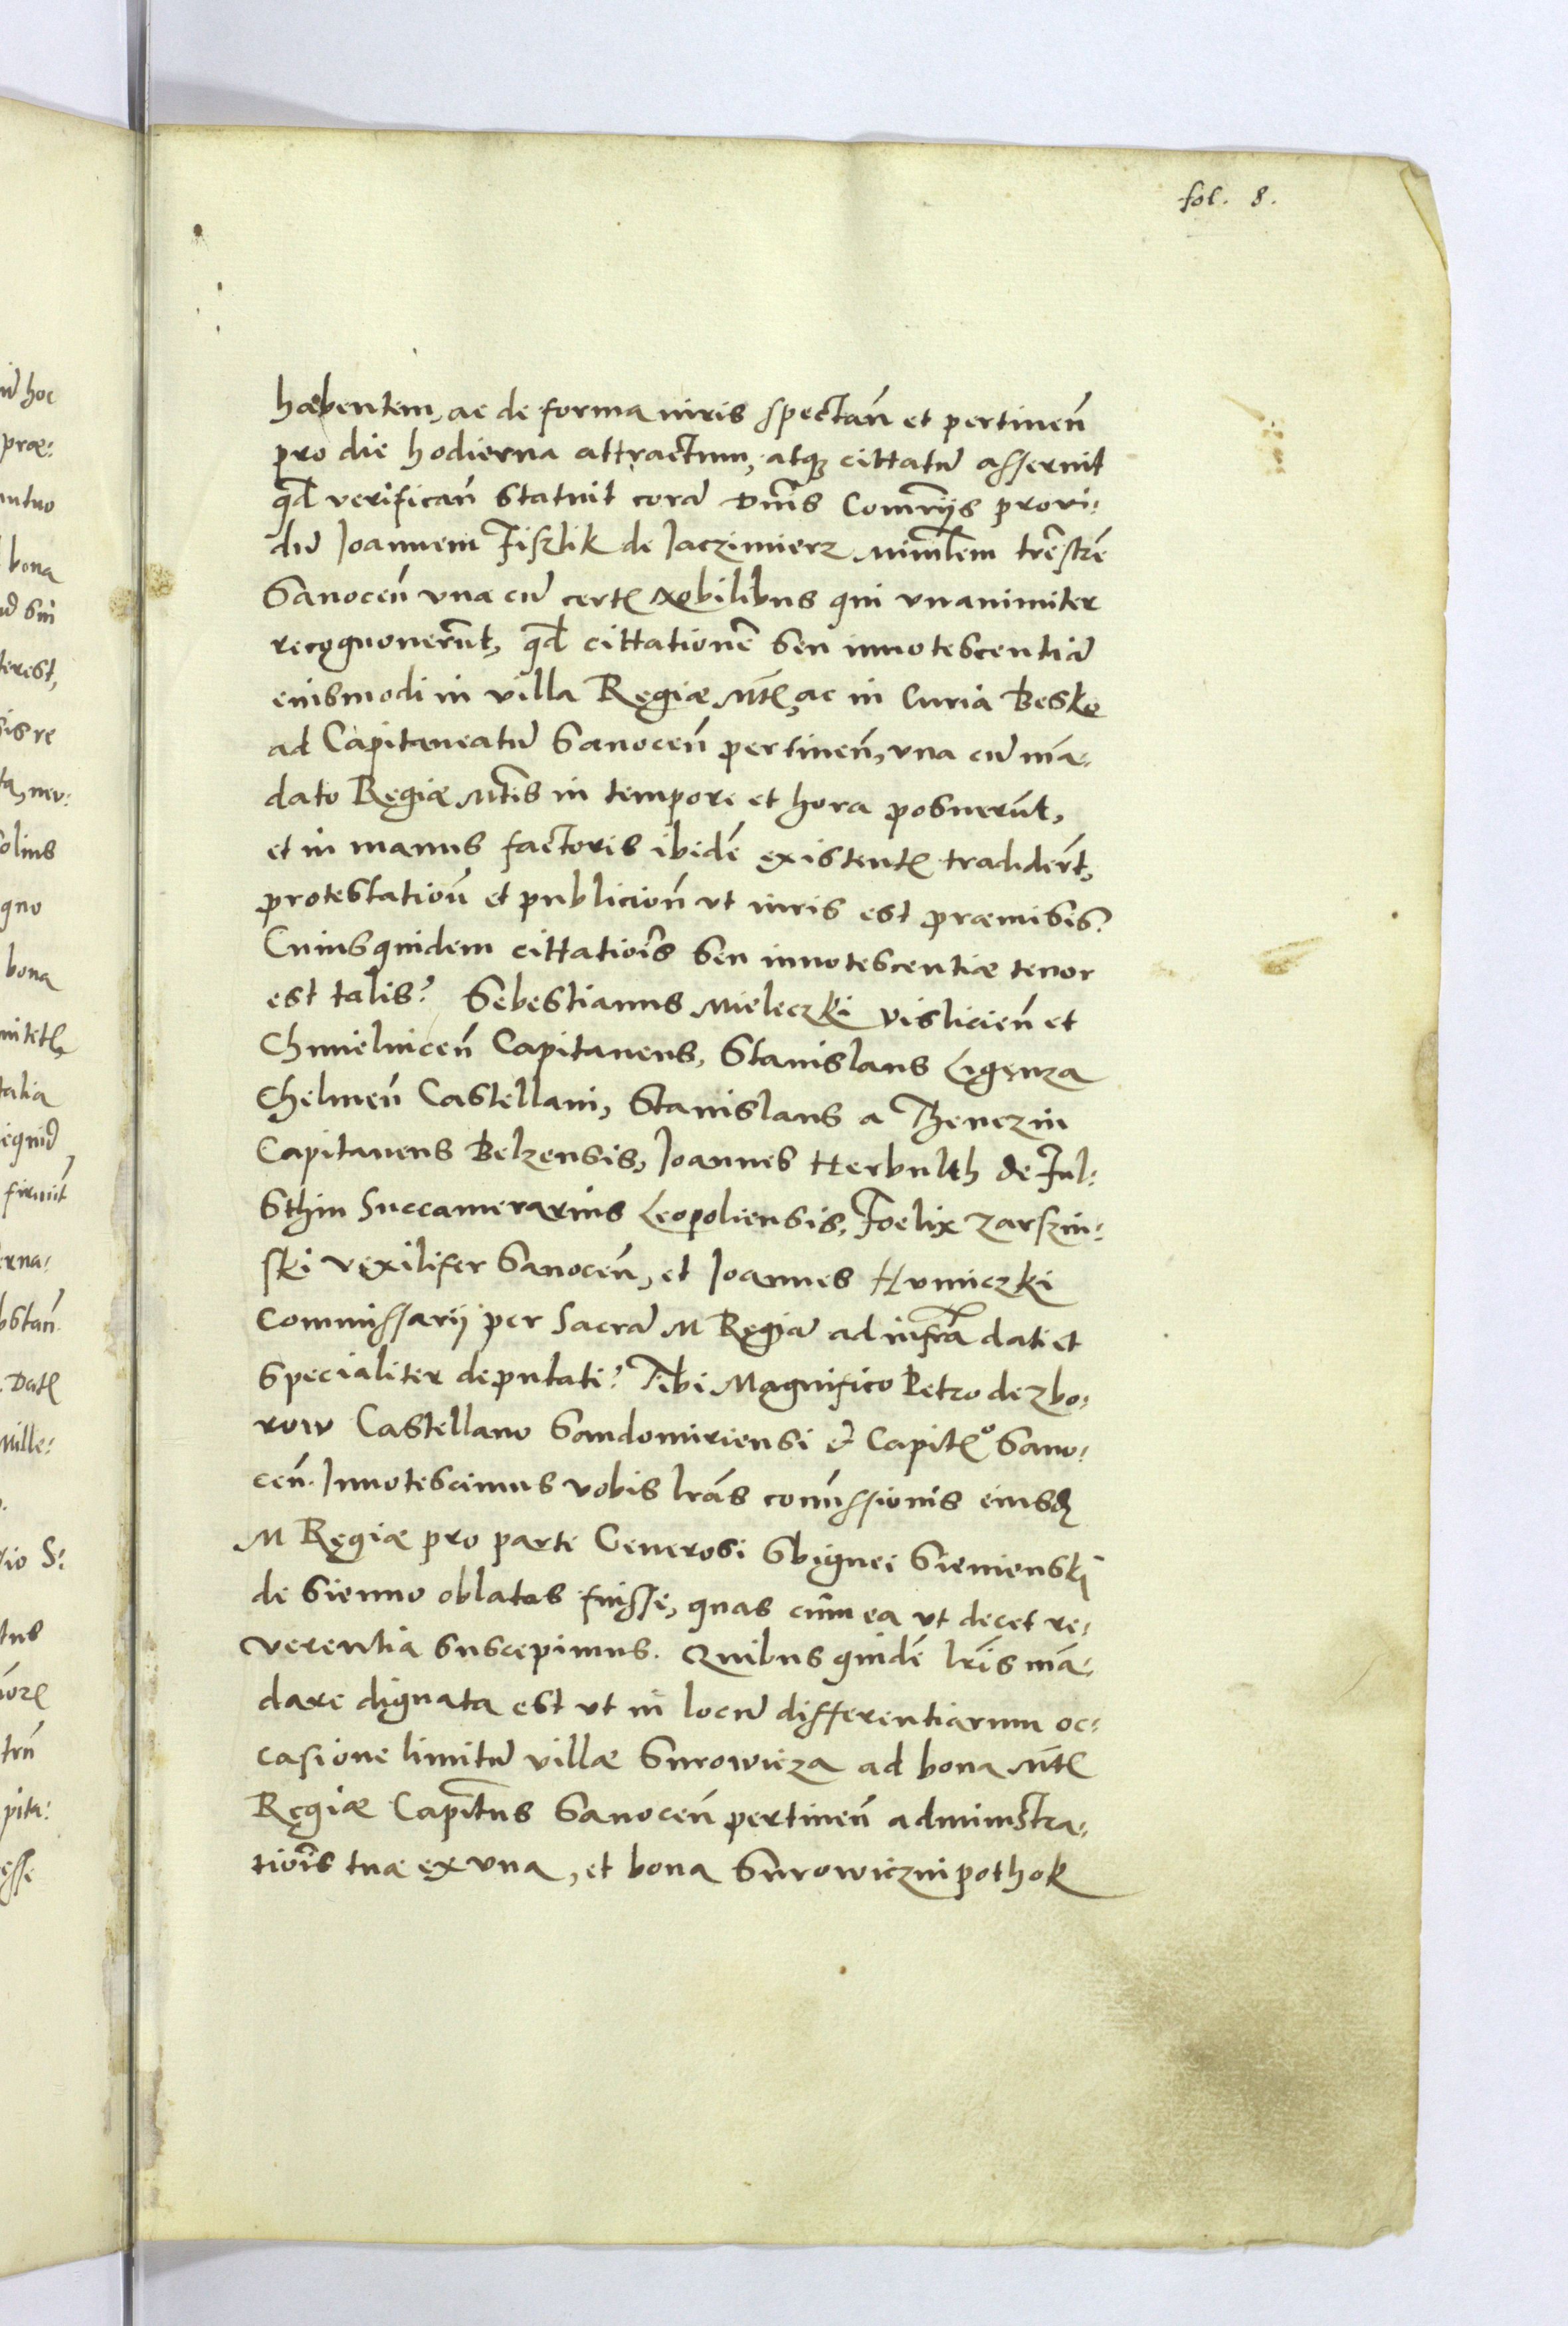 fol. 8.
habentem, ac de forma iuris spectan̄ et pertinen̄
pro die hodierna attractum, atq₃ cittatū asseruit
qd̄ verifican̄ statuit corā Dn̄is Com̄rijs provi:
dū Ioannem Fisztik de Iaczimierz Minrl̄em trēstrē
Sanocen̄ una cū certꝭ Nobilibus qui unanimiter
recognouerūt, qd̄ cittationē Seu innotescentiā
euismodi in villa Regiæ Mtꝭ, ac in Curia Besko
ad Capitaneatū Sanocen̄ pertinen̄, una cū mā:
dato Regiæ Mt̄is in tempore et hora posuerūt,
et in manus factoris ibidē existentꝭ tradider̄t,
protestation̄ et publicion̄ ut iuris est præmisis?
Cuiusquidem cittatiōis Seu innotescentiæ tenor
est talis? Sebestianus Mieleczki Vislicien̄ et
Chmielnicen̄ Capitaneus, Stanislaus Ligęnza
Chelmen̄ Castellani, Stanislaus a Thenczin
Capitaneus Belzensis, Ioannes Herbulth de Ful:
Sthin Succamerarius Leopoliensis, Foelix Zarszin:
ski Vexilifer Sanocen̄, et Ioannes Humiczki
Commissarij per Sacrā M Regiā ad infrā dati et
Specialiter deputati? Tibi Magnifico Petro de Zbo:
row Castellano Sandomiriensi & Capitꝭº Sano:
cen̄. Innotescimus vobis lrās comīssionis eiusdꝭ
M Regiæ pro parte Generosi Sbignei Sienienski
de Sienno oblatas fuisse, quas cum ea ut decet re:
verentia suscepimus. Quibus quidē lrīs mā:
dare dignata est ut in locū differentiarum oc:
casione limitū villæ Surowicza ad bona Mtꝭ
Regiæ Capīttus Sanocen̄ pertinen̄ administra:
tiōis tuæ ex una, et bona Surowicznipothok